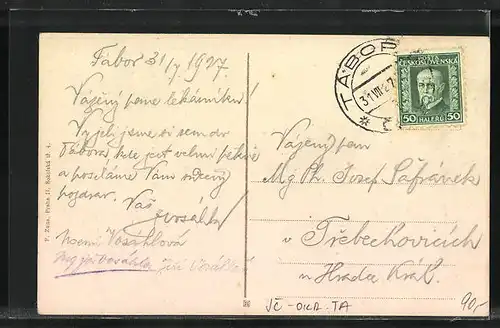 Tábor 31/7 1927
Vážený pane lékárníku!
Vyjeli jsme si sem do
Tábora, kde jest velmi pěkně
a posíláme Vám srdečný
pozdrav. Váš
Vosáhlová
P. Zuna, Praha II.
TÁBOR
31 VII 27
ČESKOSLOVENSKÁ
50 HALÉŘŮ 50
Vážený pan
Mg Ph. Josef Šafránek
v Třebechovicích
u Hradce Král.
VČ - OKR. TA
90,-